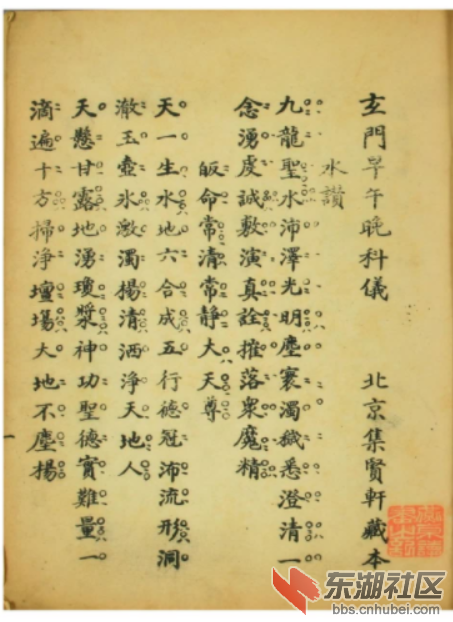 玄門早午晚科儀 北京集賢軒藏本
水讚
九龍聖水沛澤光明塵寰濁穢悉澄清一
念湧虔誠敷演真詮摧落衆魔精
皈命常清常静大天尊
天一生水地六合成五行德冠沛流形洞
澈玉壺氷激濁揚清洒淨天地人
天懸甘露地湧瓊漿神功聖德實難量一
滴遍十方掃淨壇場大地不塵揚
东湖社区
bbs.cnhubei.com